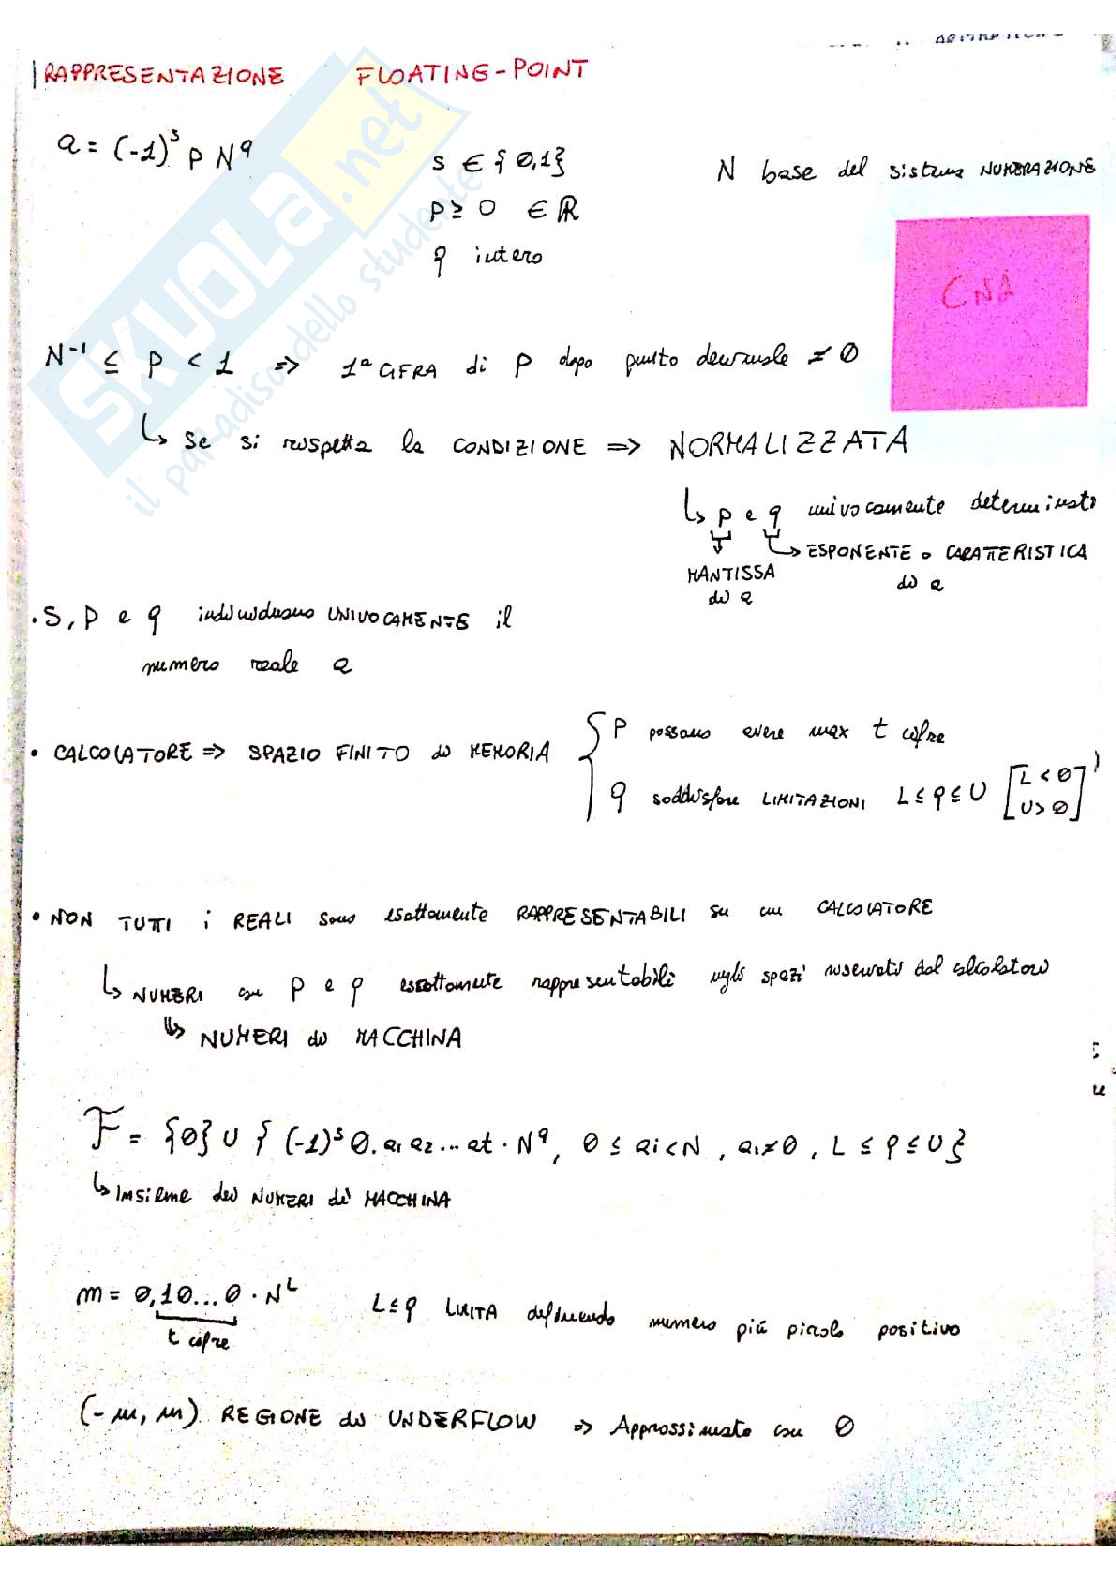 RAPPRESENTAZIONE FLOATING-POINT
a = (-1)^s p N^q
s ∈ {0,1}
N base del sistema NUMERAZIONE
p ≥ 0 ∈ ℝ
q intero
CNA
N^-1 ≤ p < 1 ⇒ 1ª CIFRA di p dopo punto decimale ≠ 0
↳ se si rispetta la CONDIZIONE ⇒ NORMALIZZATA
↳ p e q univocamente determinati
↳ ESPONENTE o CARATTERISTICA di a
MANTISSA di a
• S, p e q individuano UNIVOCAMENTE il
numero reale a
• CALCOLATORE ⇒ SPAZIO FINITO di MEMORIA { p possano avere max t cifre
q soddisfare LIMITAZIONI L ≤ q ≤ U [L < 0
U > 0]
• NON TUTTI i REALI sono esattamente RAPPRESENTABILI su un CALCOLATORE
↳ NUMERI con p e q esattamente rappresentabili negli spazi riservati dal calcolatore
⇒ NUMERI di MACCHINA
F = {0} ∪ { (-1)^s 0.a1 a2 ... at · N^q, 0 ≤ ai < N, a1 ≠ 0, L ≤ q ≤ U }
↳ Insieme dei NUMERI di MACCHINA
m = 0,10...0 · N^L
t cifre
L ≤ q LIMITA definendo numero più piccolo positivo
(-m, m) REGIONE di UNDERFLOW ⇒ Approssimato con 0
SKUOLA.net
il paradiso dello studente